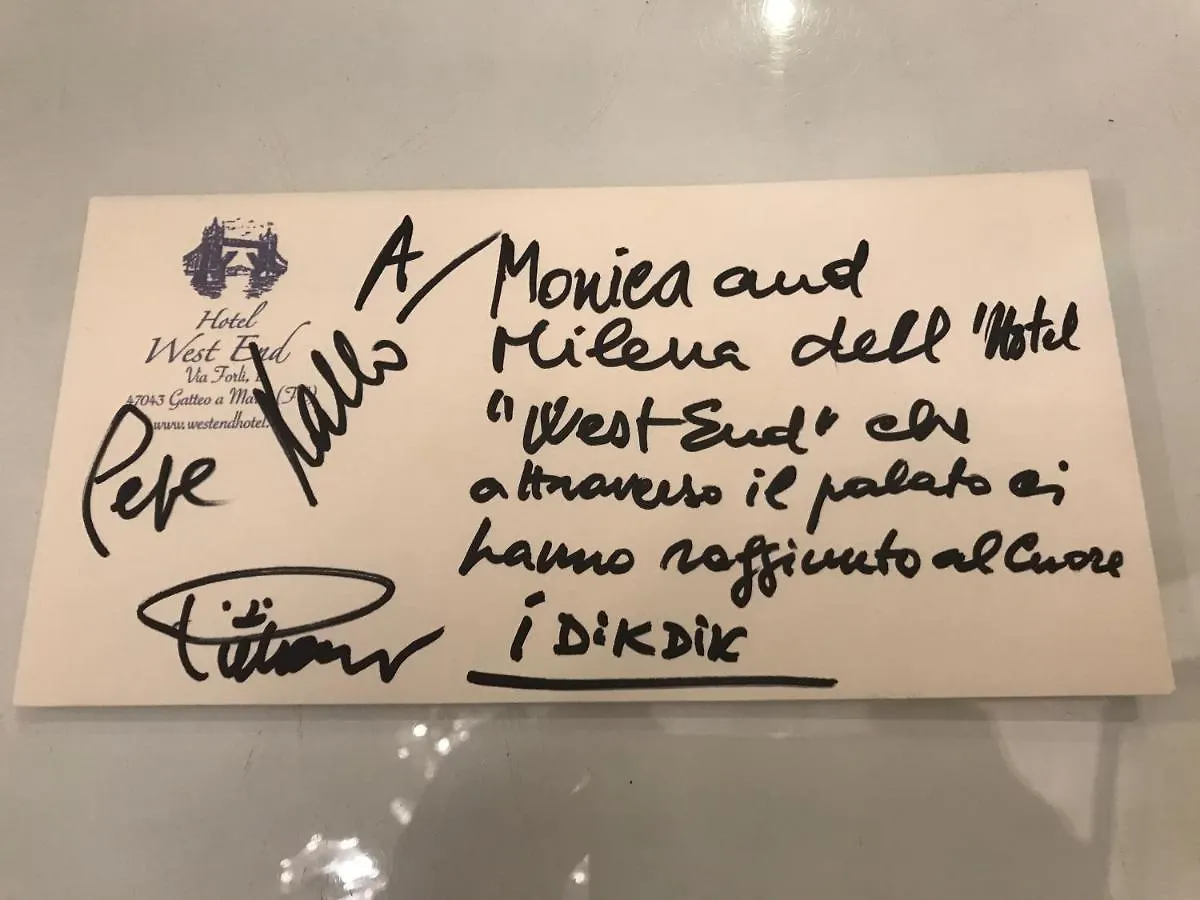 Hotel
West End
Via Forlì,
47043 Gatteo a Mare
www.westendhotel.
A/ Monica and
Milena dell'Hotel
"West End" che
attraverso il palato ci
hanno raggiunto al Cuore
i DiKDiK
Pepe